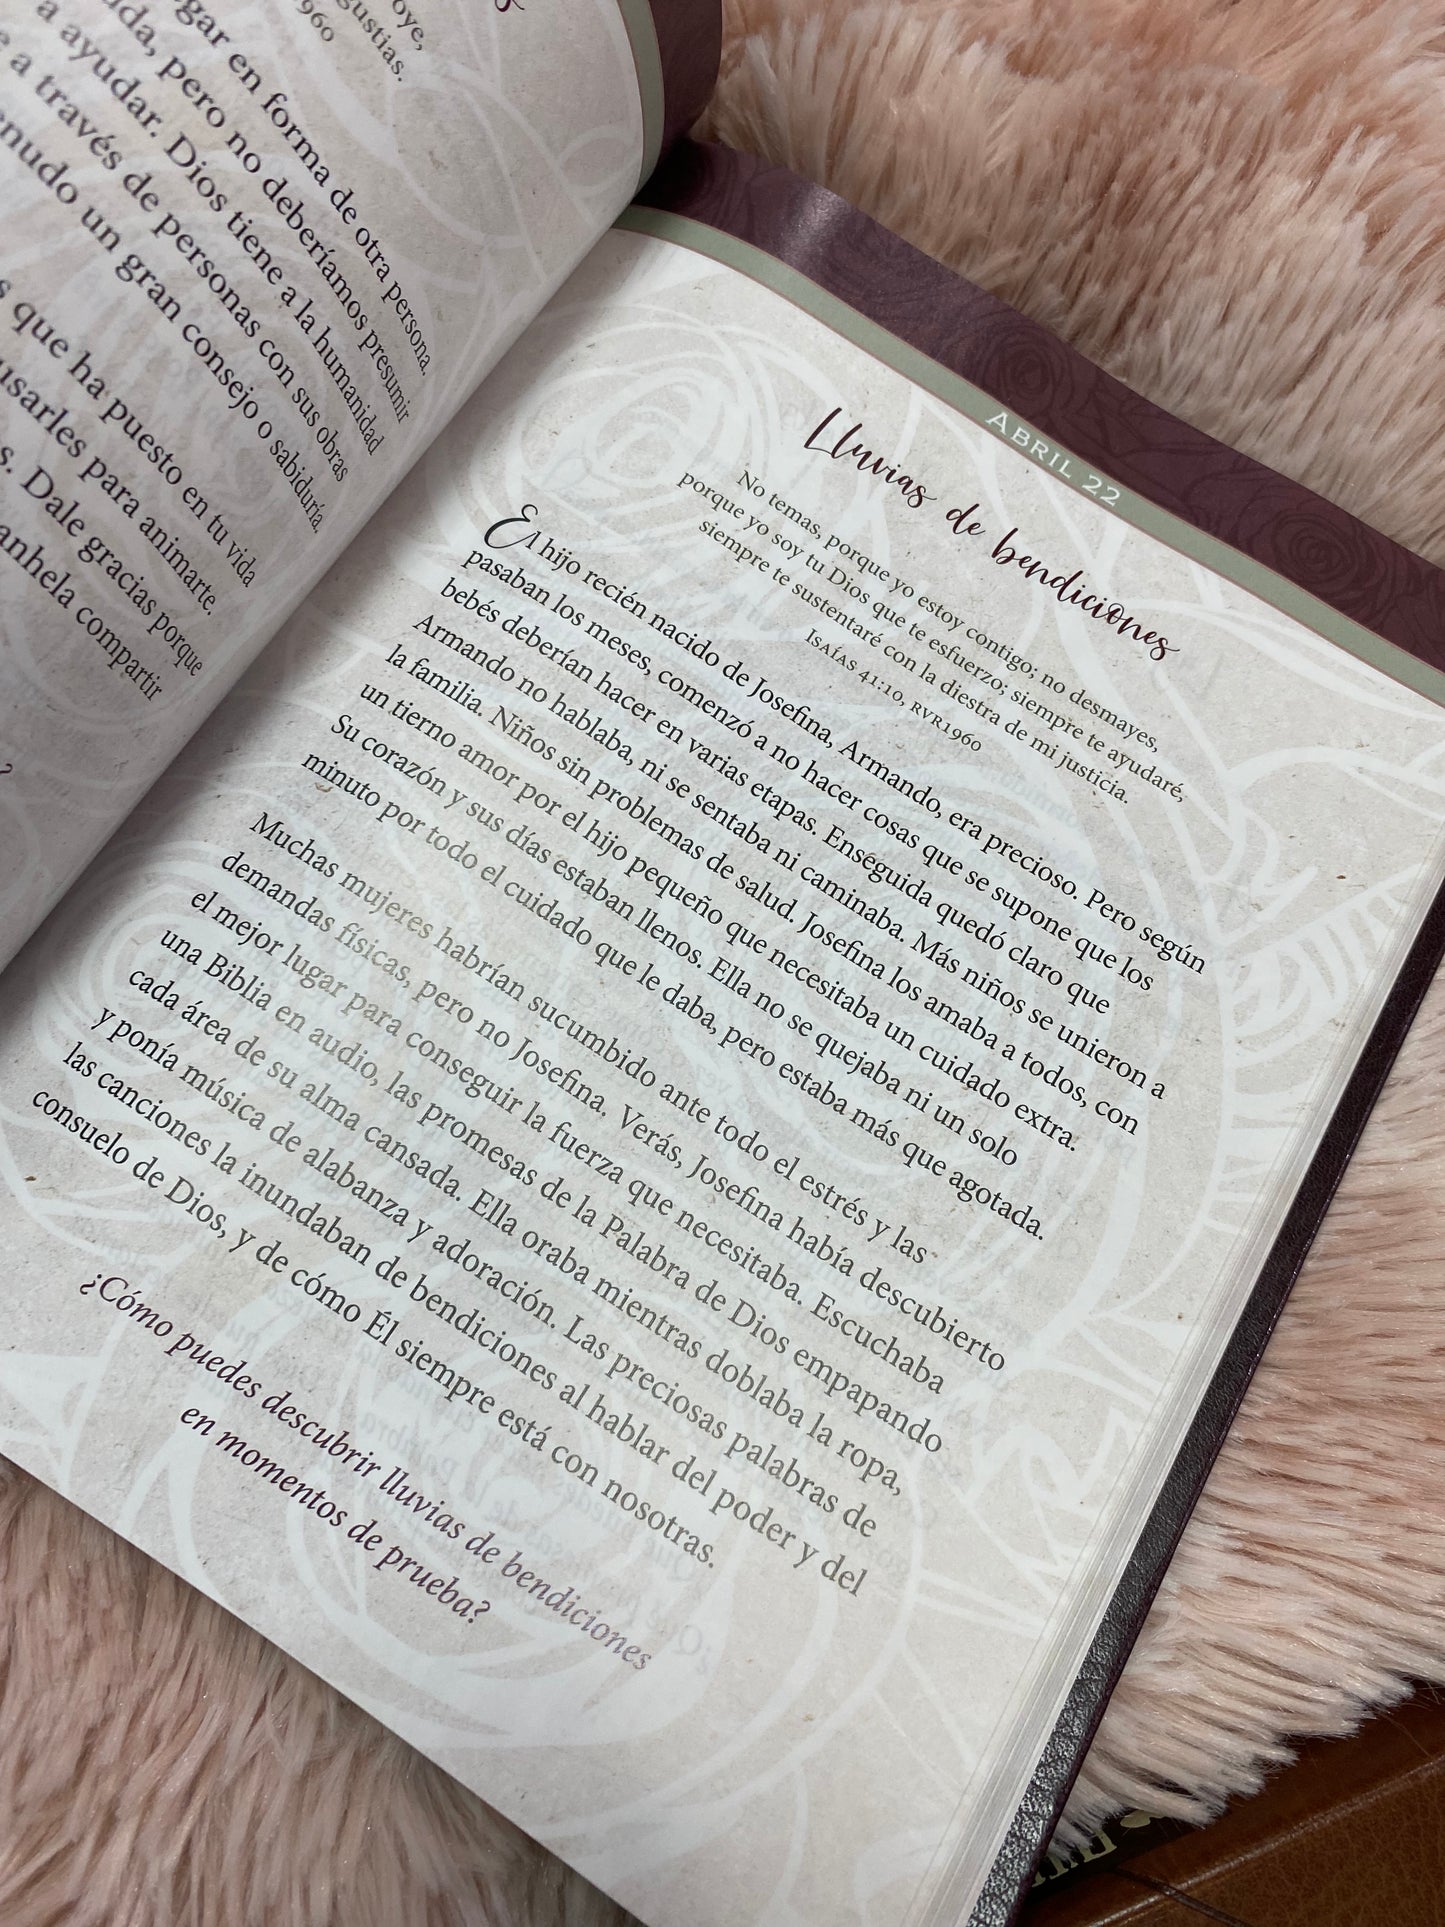 oye,
gustias.
1960
gar en forma de otra persona.
da, pero no deberíamos presumir
a ayudar. Dios tiene a la humanidad
e a través de personas con sus obras
enudo un gran consejo o sabiduría.
s que ha puesto en tu vida
usarles para animarte.
s. Dale gracias porque
anhela compartir
?
ABRIL 22
Lluvias de bendiciones
No temas, porque yo estoy contigo; no desmayes,
porque yo soy tu Dios que te esfuerzo; siempre te ayudaré,
siempre te sustentaré con la diestra de mi justicia.
ISAÍAS 41:10, RVR1960
El hijo recién nacido de Josefina, Armando, era precioso. Pero según
pasaban los meses, comenzó a no hacer cosas que se supone que los
bebés deberían hacer en varias etapas. Enseguida quedó claro que
Armando no hablaba, ni se sentaba ni caminaba. Más niños se unieron a
la familia. Niños sin problemas de salud. Josefina los amaba a todos, con
un tierno amor por el hijo pequeño que necesitaba un cuidado extra.
Su corazón y sus días estaban llenos. Ella no se quejaba ni un solo
minuto por todo el cuidado que le daba, pero estaba más que agotada.
Muchas mujeres habrían sucumbido ante todo el estrés y las
demandas físicas, pero no Josefina. Verás, Josefina había descubierto
el mejor lugar para conseguir la fuerza que necesitaba. Escuchaba
una Biblia en audio, las promesas de la Palabra de Dios empapando
cada área de su alma cansada. Ella oraba mientras doblaba la ropa,
y ponía música de alabanza y adoración. Las preciosas palabras de
las canciones la inundaban de bendiciones al hablar del poder y del
consuelo de Dios, y de cómo Él siempre está con nosotras.
¿Cómo puedes descubrir lluvias de bendiciones
en momentos de prueba?